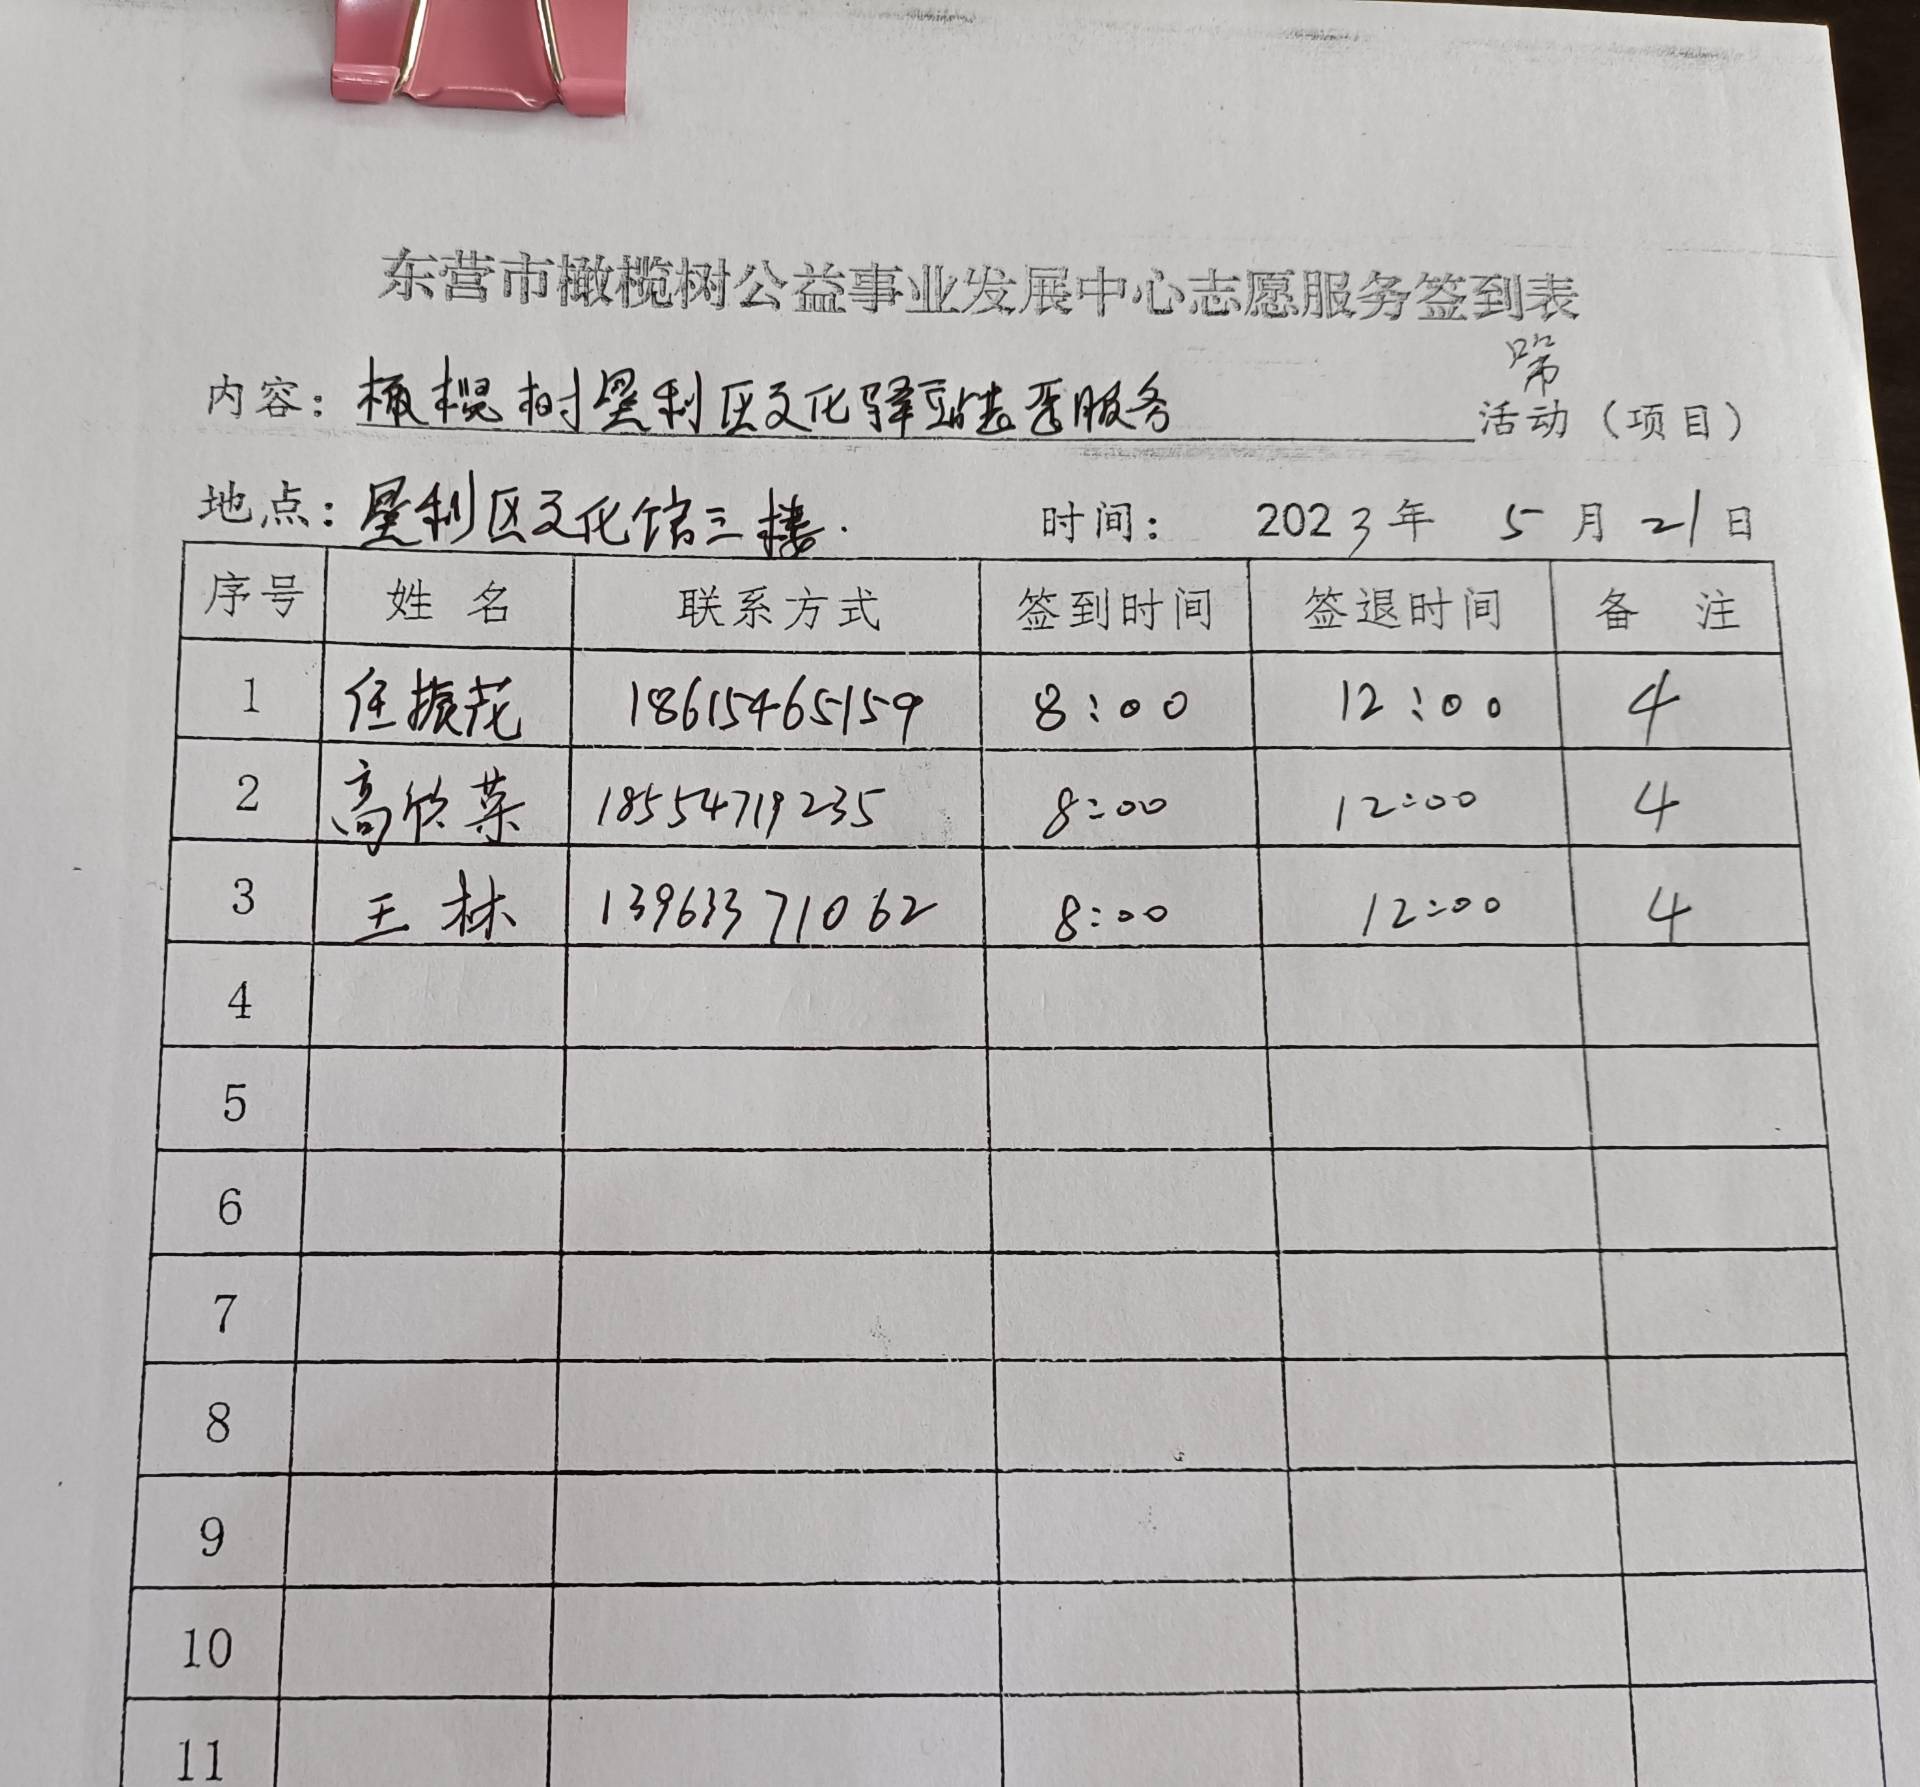 东营市橄榄树公益事业发展中心志愿服务签到表
内容：橄榄树垦利区文化驿站志愿服务 活动（项目）
地点：垦利区文化馆三楼. 时间： 2023年 5月21日
序号 姓名 联系方式 签到时间 签退时间 备注
1 任振茂 18615465159 8:00 12:00 4
2 高欣荣 18554719235 8:00 12:00 4
3 王林 13963371062 8:00 12:00 4
4
5
6
7
8
9
10
11